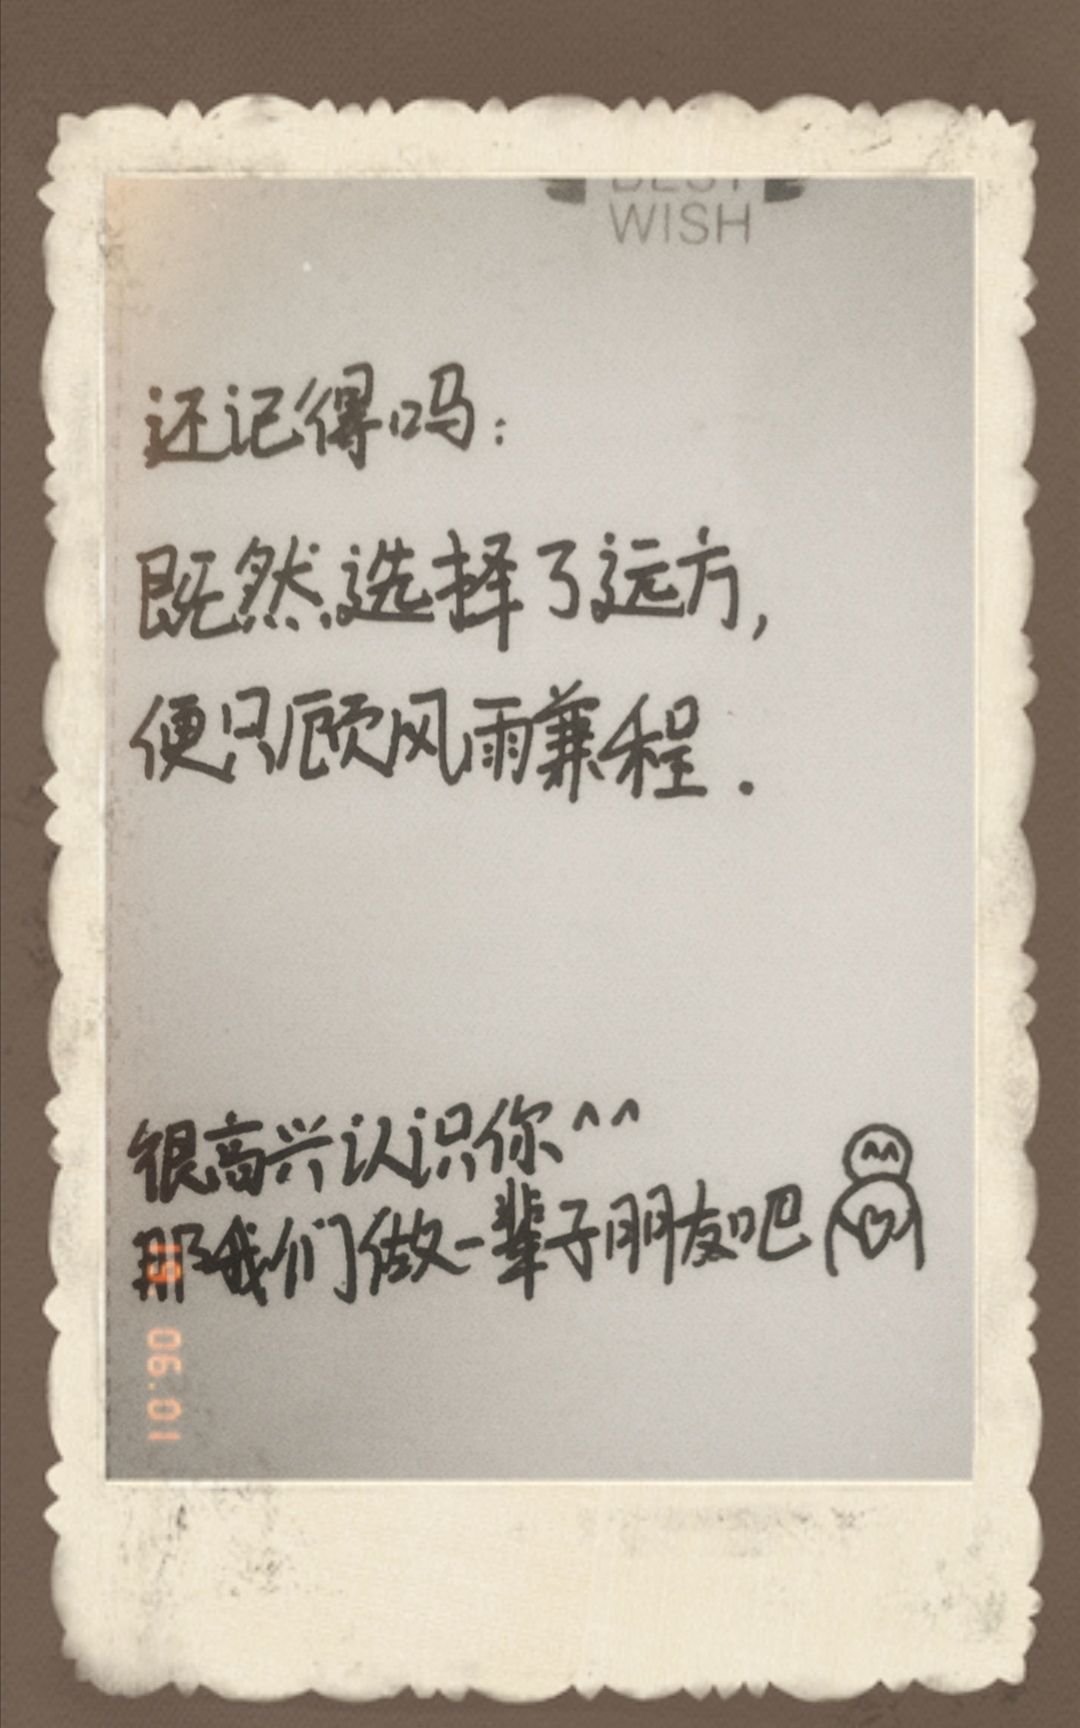 BEST
WISH
还记得吗：
既然选择了远方，
便只顾风雨兼程.
很高兴认识你^^
那我们做一辈子朋友吧
06.01